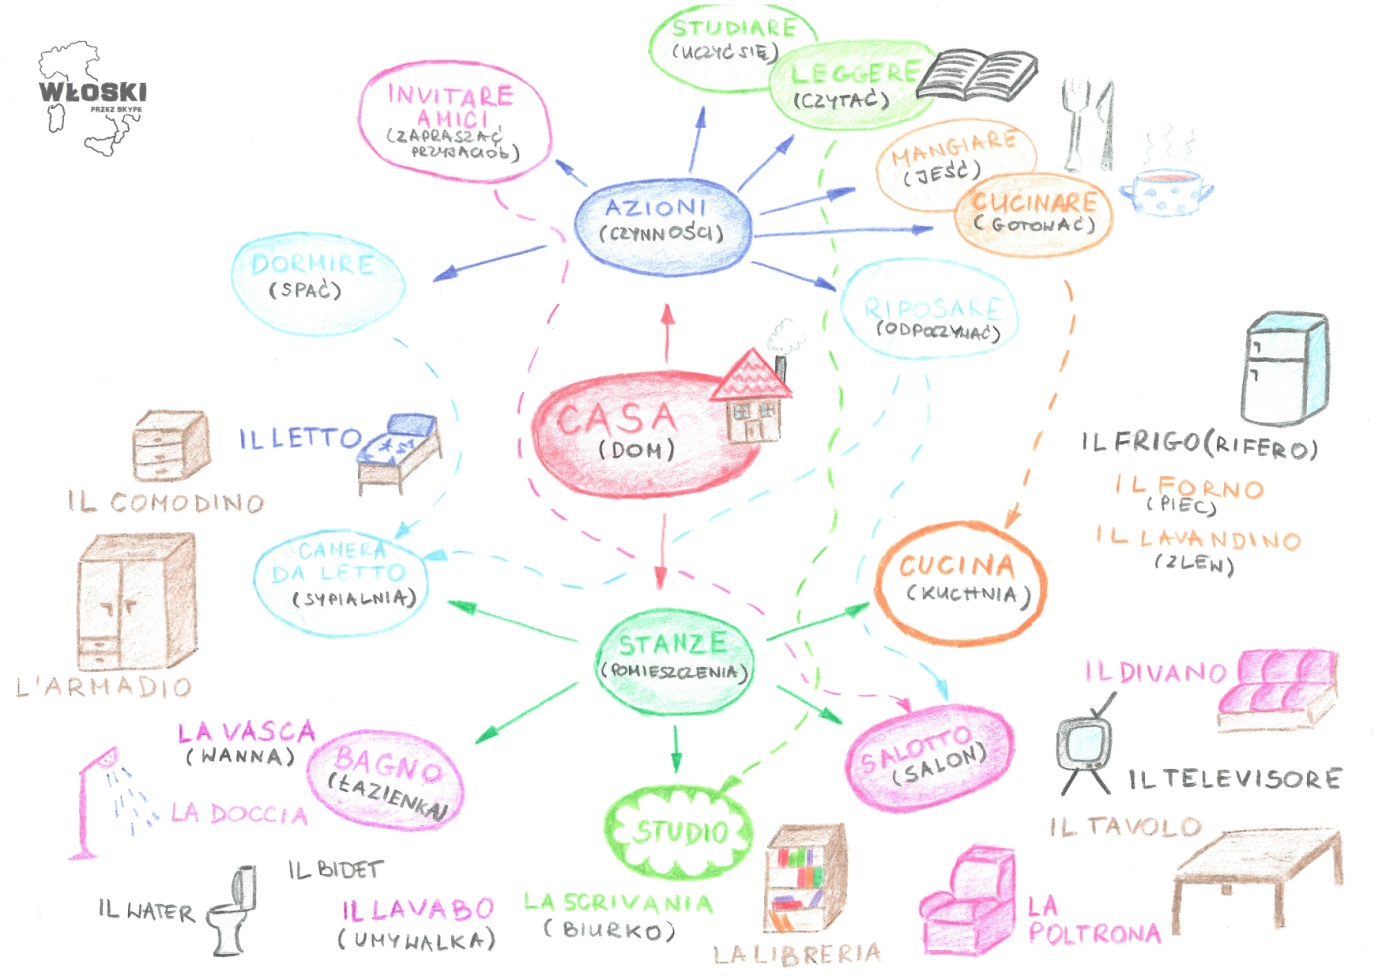 WŁOSKI
PRZEZ SKYPE
STUDIARE
(UCZYĆ SIĘ)
LEGGERE
(CZYTAĆ)
INVITARE
AMICI
(ZAPRASZAĆ
PRZYJACIÓŁ)
MANGIARE
(JEŚĆ)
CUCINARE
(GOTOWAĆ)
AZIONI
(CZYNNOŚCI)
DORMIRE
(SPAĆ)
RIPOSARE
(ODPOCZYWAĆ)
CASA
(DOM)
IL LETTO
IL COMODINO
IL FRIGO(RIFERO)
IL FORNO
(PIEC)
IL LAVANDINO
(ZLEW)
CAMERA
DA LETTO
(SYPIALNIA)
CUCINA
(KUCHNIA)
STANZE
(POMIESZCZENIA)
L'ARMADIO
IL DIVANO
LA VASCA
(WANNA)
BAGNO
(ŁAZIENKA)
SALOTTO
(SALON)
IL TELEVISORE
LA DOCCIA
STUDIO
IL TAVOLO
IL BIDET
IL WATER
IL LAVABO
(UMYWALKA)
LA SCRIVANIA
(BIURKO)
LA LIBRERIA
LA
POLTRONA